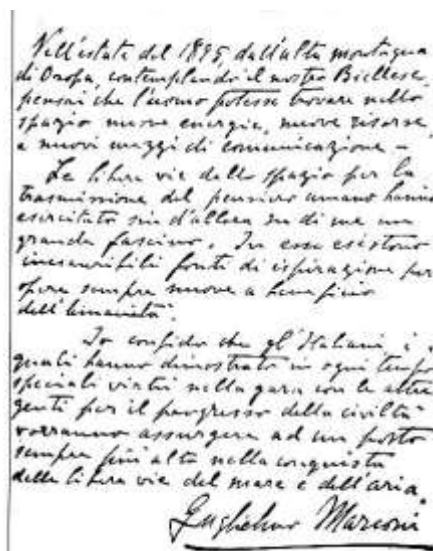 Nell'estate del 1895, dall'alta montagna
di Oropa, contemplando il nostro Biellese,
pensai che l'uomo potesse trovare nello
spazio nuove energie, nuove risorse,
e nuovi mezzi di comunicazione —
Le libere vie dello spazio per la
trasmissione del pensiero umano hanno
esercitato sin d'allora su di me un
grande fascino. In esse esistono
inesauribili fonti di ispirazione per
opere sempre nuove a beneficio
dell'umanità.
Io confido che gl'Italiani, i
quali hanno dimostrato in ogni tempo
speciali virtù nella gara con le altre
genti per il progresso della civiltà
vorranno assurgere ad un posto
sempre più alto nella conquista
delle libere vie del mare e dell'aria.
Guglielmo Marconi